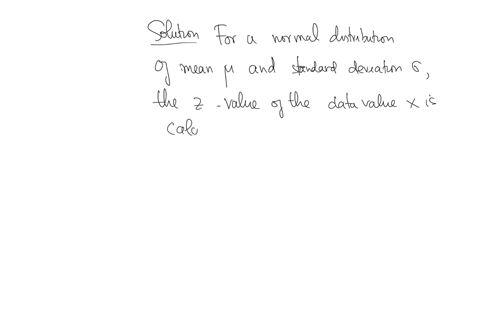 Solution For a normal distribution
of mean μ and standard deviation σ,
the z-value of the data value x is
calc